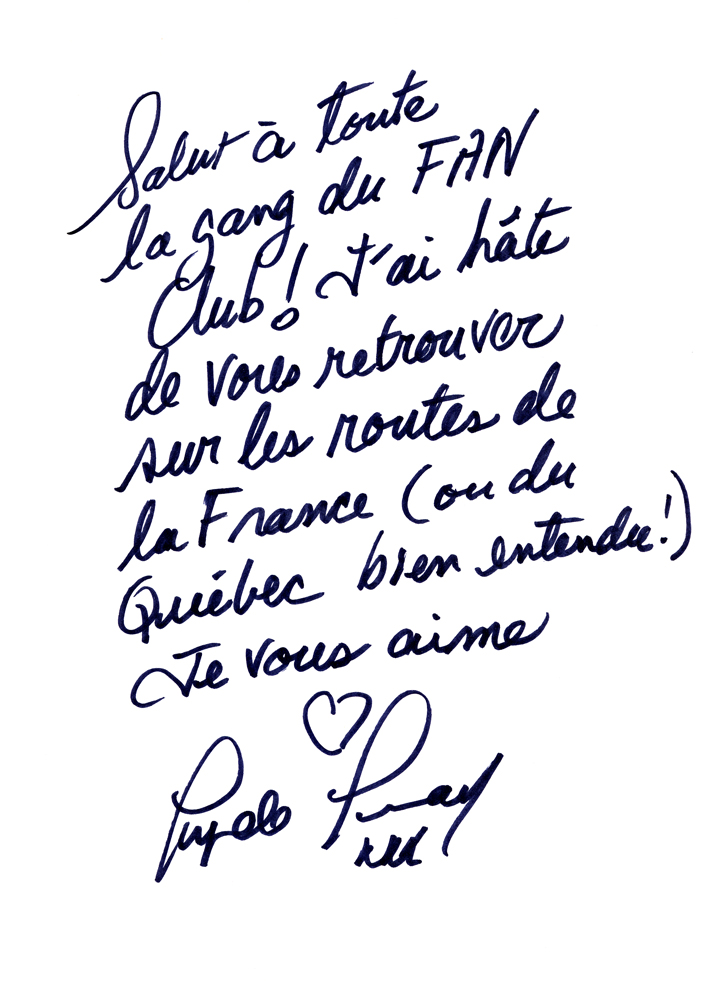 Salut à toute
la gang du FAN
Club! J'ai hâte
de vous retrouver
sur les routes de
la France (ou du
Québec bien entendu!)
Je vous aime
xxx